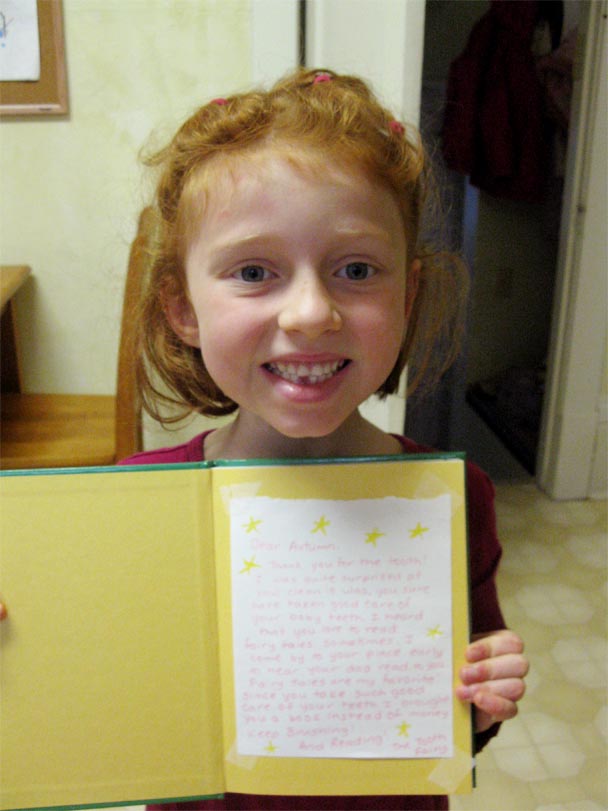 Dear Autumn,
Thank you for the tooth!
I was quite surprised at
how clean it was, you sure
have taken good care of
your baby teeth. I heard
that you like to read
fairy tales. Sometimes, I
come by to your place early
to hear your dad read to you
Fairy tales are my favorite
since you take such good
care of your teeth I brought
you a book instead of money
Keep Brushing!
And Reading!
The Tooth
Fairy